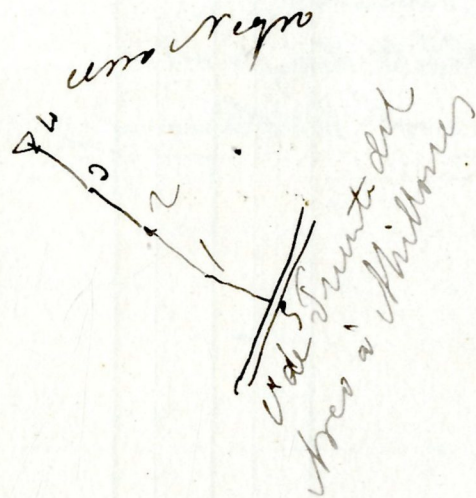 Cerro Negro
4
3
2
1
5
Co de Fuente del
Arco á Ahillones